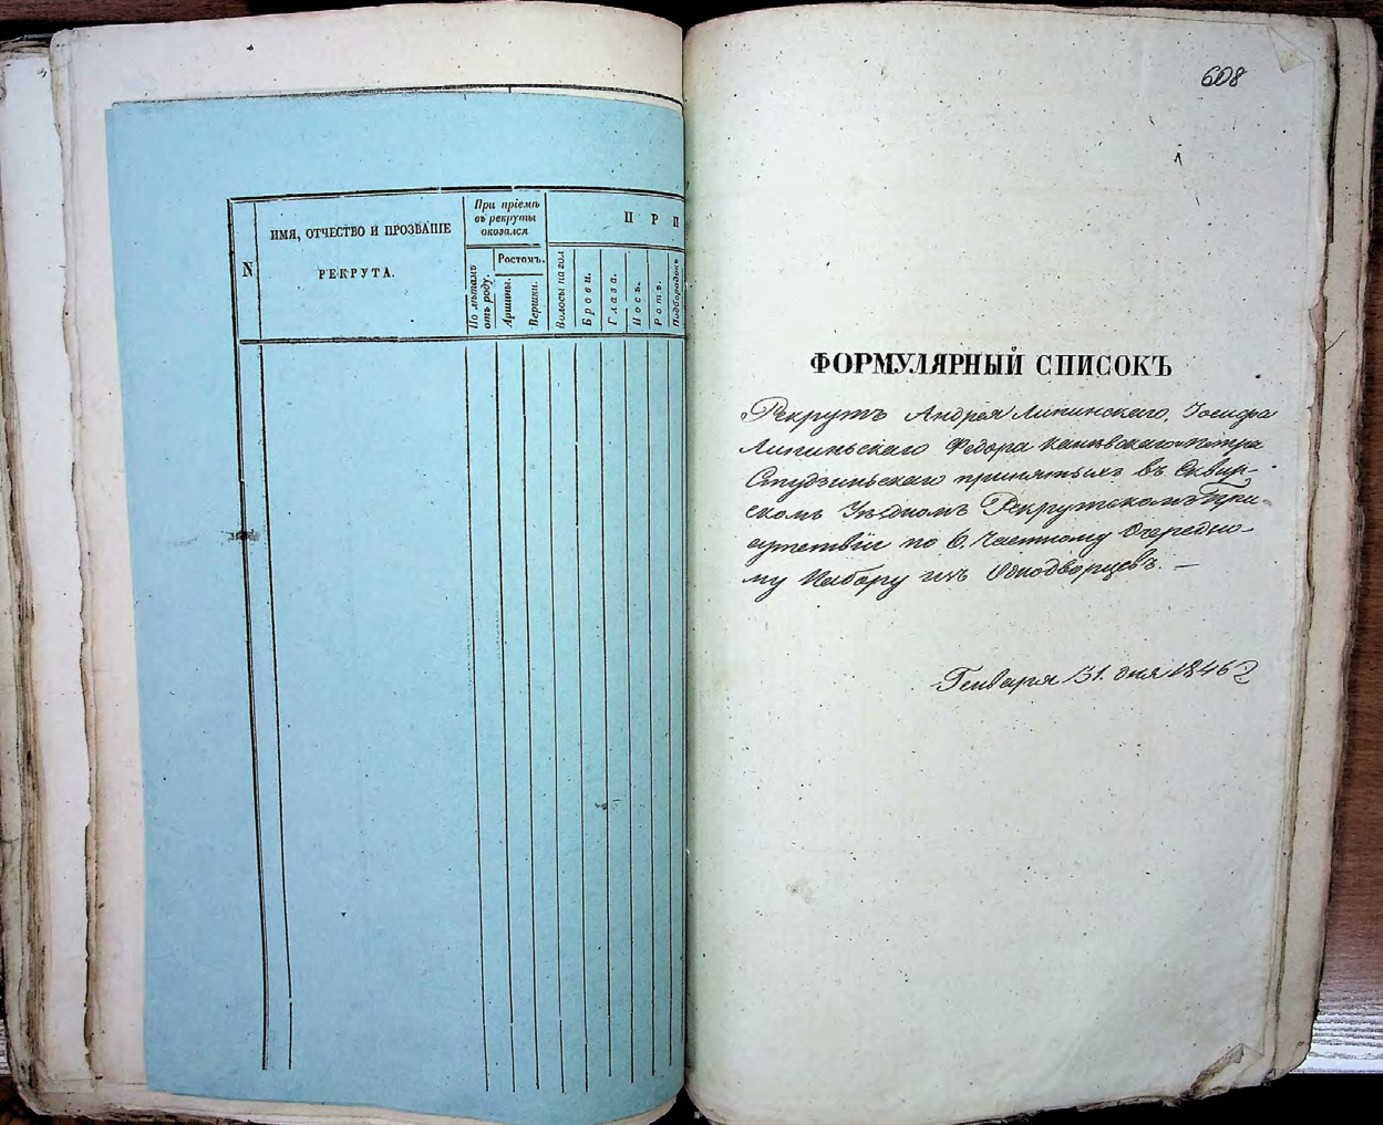 N
ИМЯ, ОТЧЕСТВО И ПРОЗВАНІЕ
РЕКРУТА.
При пріемѣ
въ рекруты
оказался
По лѣтамъ
отъ роду.
Ростомъ.
Аршины.
Вершки.
П Р И
Волосы на гол
Брови.
Глаза.
Носъ.
Ротъ.
Подбородокъ
608
ФОРМУЛЯРНЫЙ СПИСОКЪ
Рекрутъ Андрея Липинскаго, Іосифа
Липиньскаго Федора Каневскаго Петра
Студзиньскаго принятыхъ въ Сквир-
скомъ Уѣздномъ Рекрутскомъ При-
сутствіи по 6. Частному Очередно-
му Набору изъ Однодворцевъ. —
Генваря 31. дня 1846 г